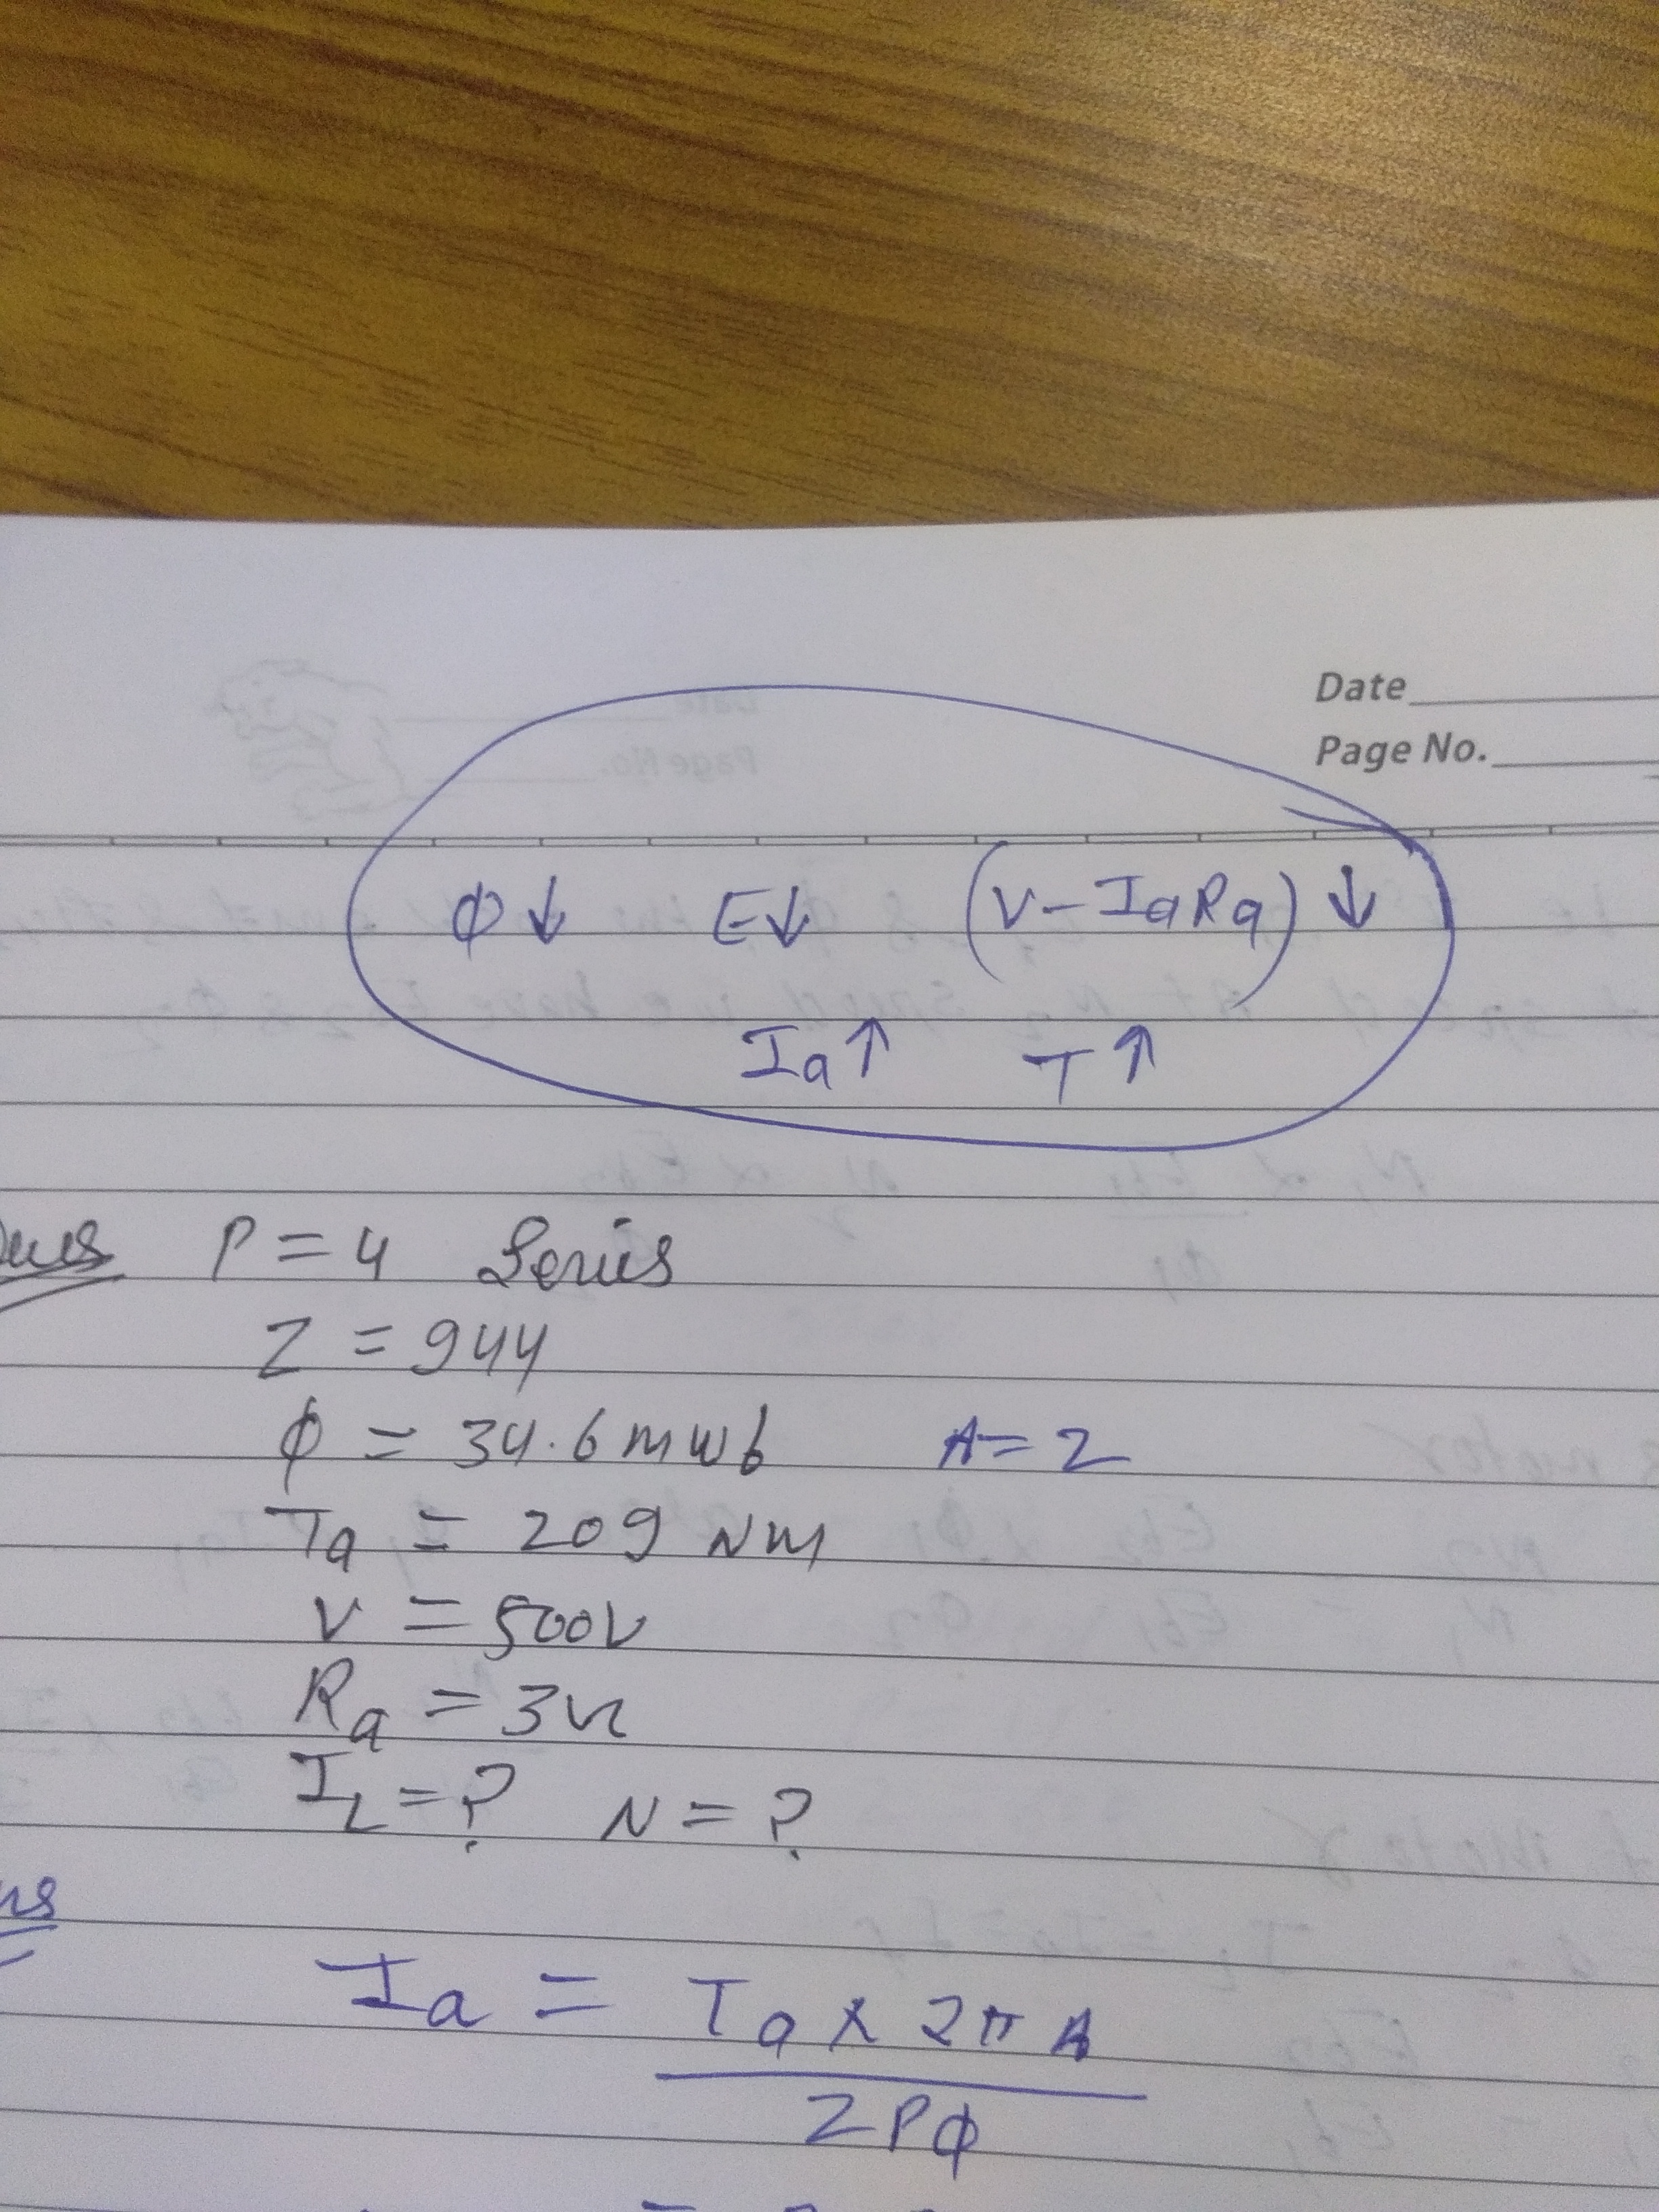 Date
Page No.
ϕ↓ E↓ (V-IaRa)↓
Ia↑ T↑
P = 4 Series
Z = 944
ϕ = 34.6 mwb A=2
Ta = 209 NM
V = 500V
Ra = 3Ω
IL = ? N = ?
Ia = Ta x 2π A
ZPϕ